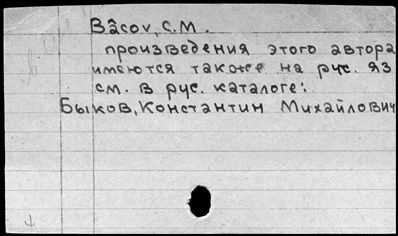 Bâcov, C.M.
произведения этого автора
имеются также на рус. яз
см. в рус. каталоге:
Быков, Константин Михайлович